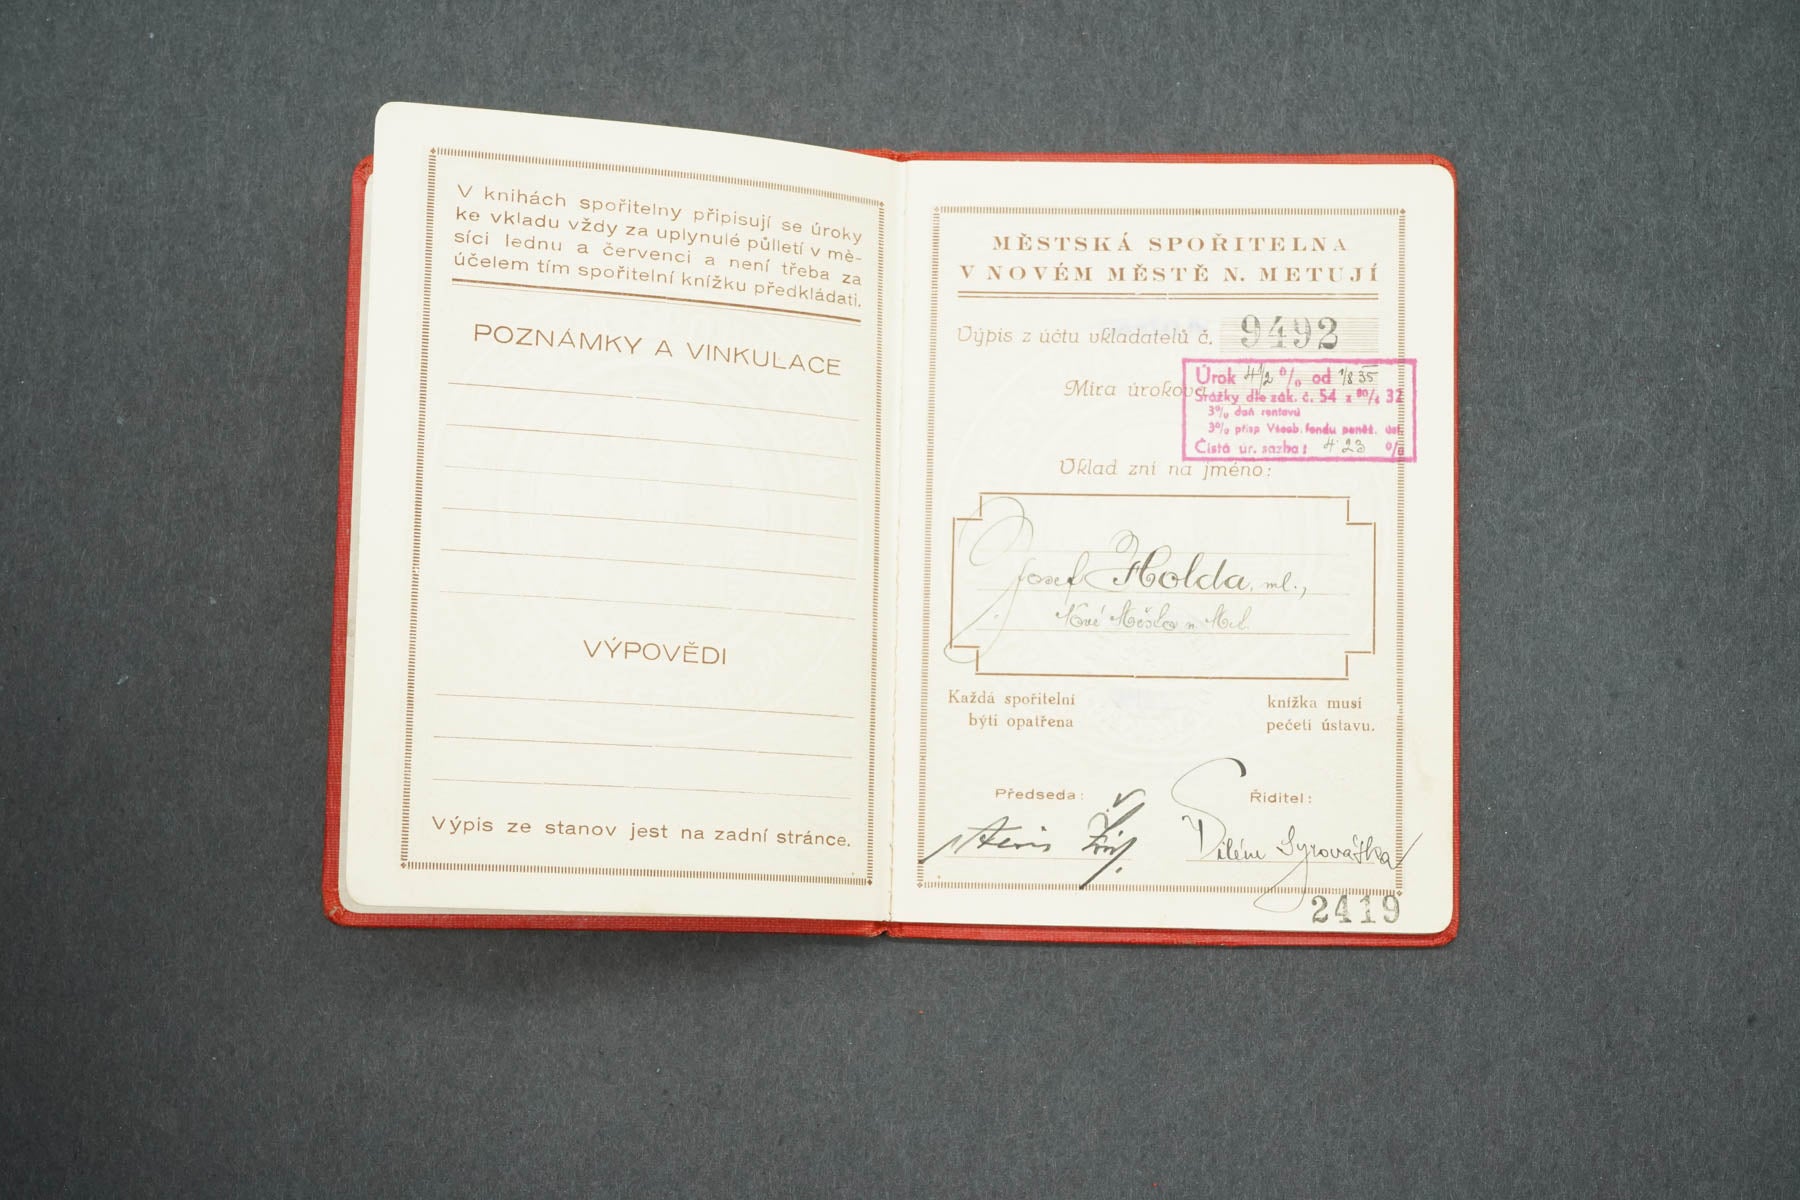 V knihách spořitelny připisují se úroky
ke vkladu vždy za uplynulé půlletí v mě-
síci lednu a červenci a není třeba za
účelem tím spořitelní knížku předkládati.
POZNÁMKY A VINKULACE
VÝPOVĚDI
Výpis ze stanov jest na zadní stránce.
MĚSTSKÁ SPOŘITELNA
V NOVÉM MĚSTĚ N. METUJÍ
Výpis z účtu vkladatelů č. 9492
Míra úroková
Úrok 4 1/2 % od 1/8 35
Srážky dle zák. č. 54 z 32
3% daň rentová
3% přísp Všeob. fondu peněž. úst.
Čistá úr. sazba: 4·23 %
Vklad zní na jméno:
Josef Holda, ml.,
Nové Město n. Met.
Každá spořitelní knížka musí
býti opatřena pečetí ústavu.
Předseda: Ředitel:
Vilém Syrovátka
2419